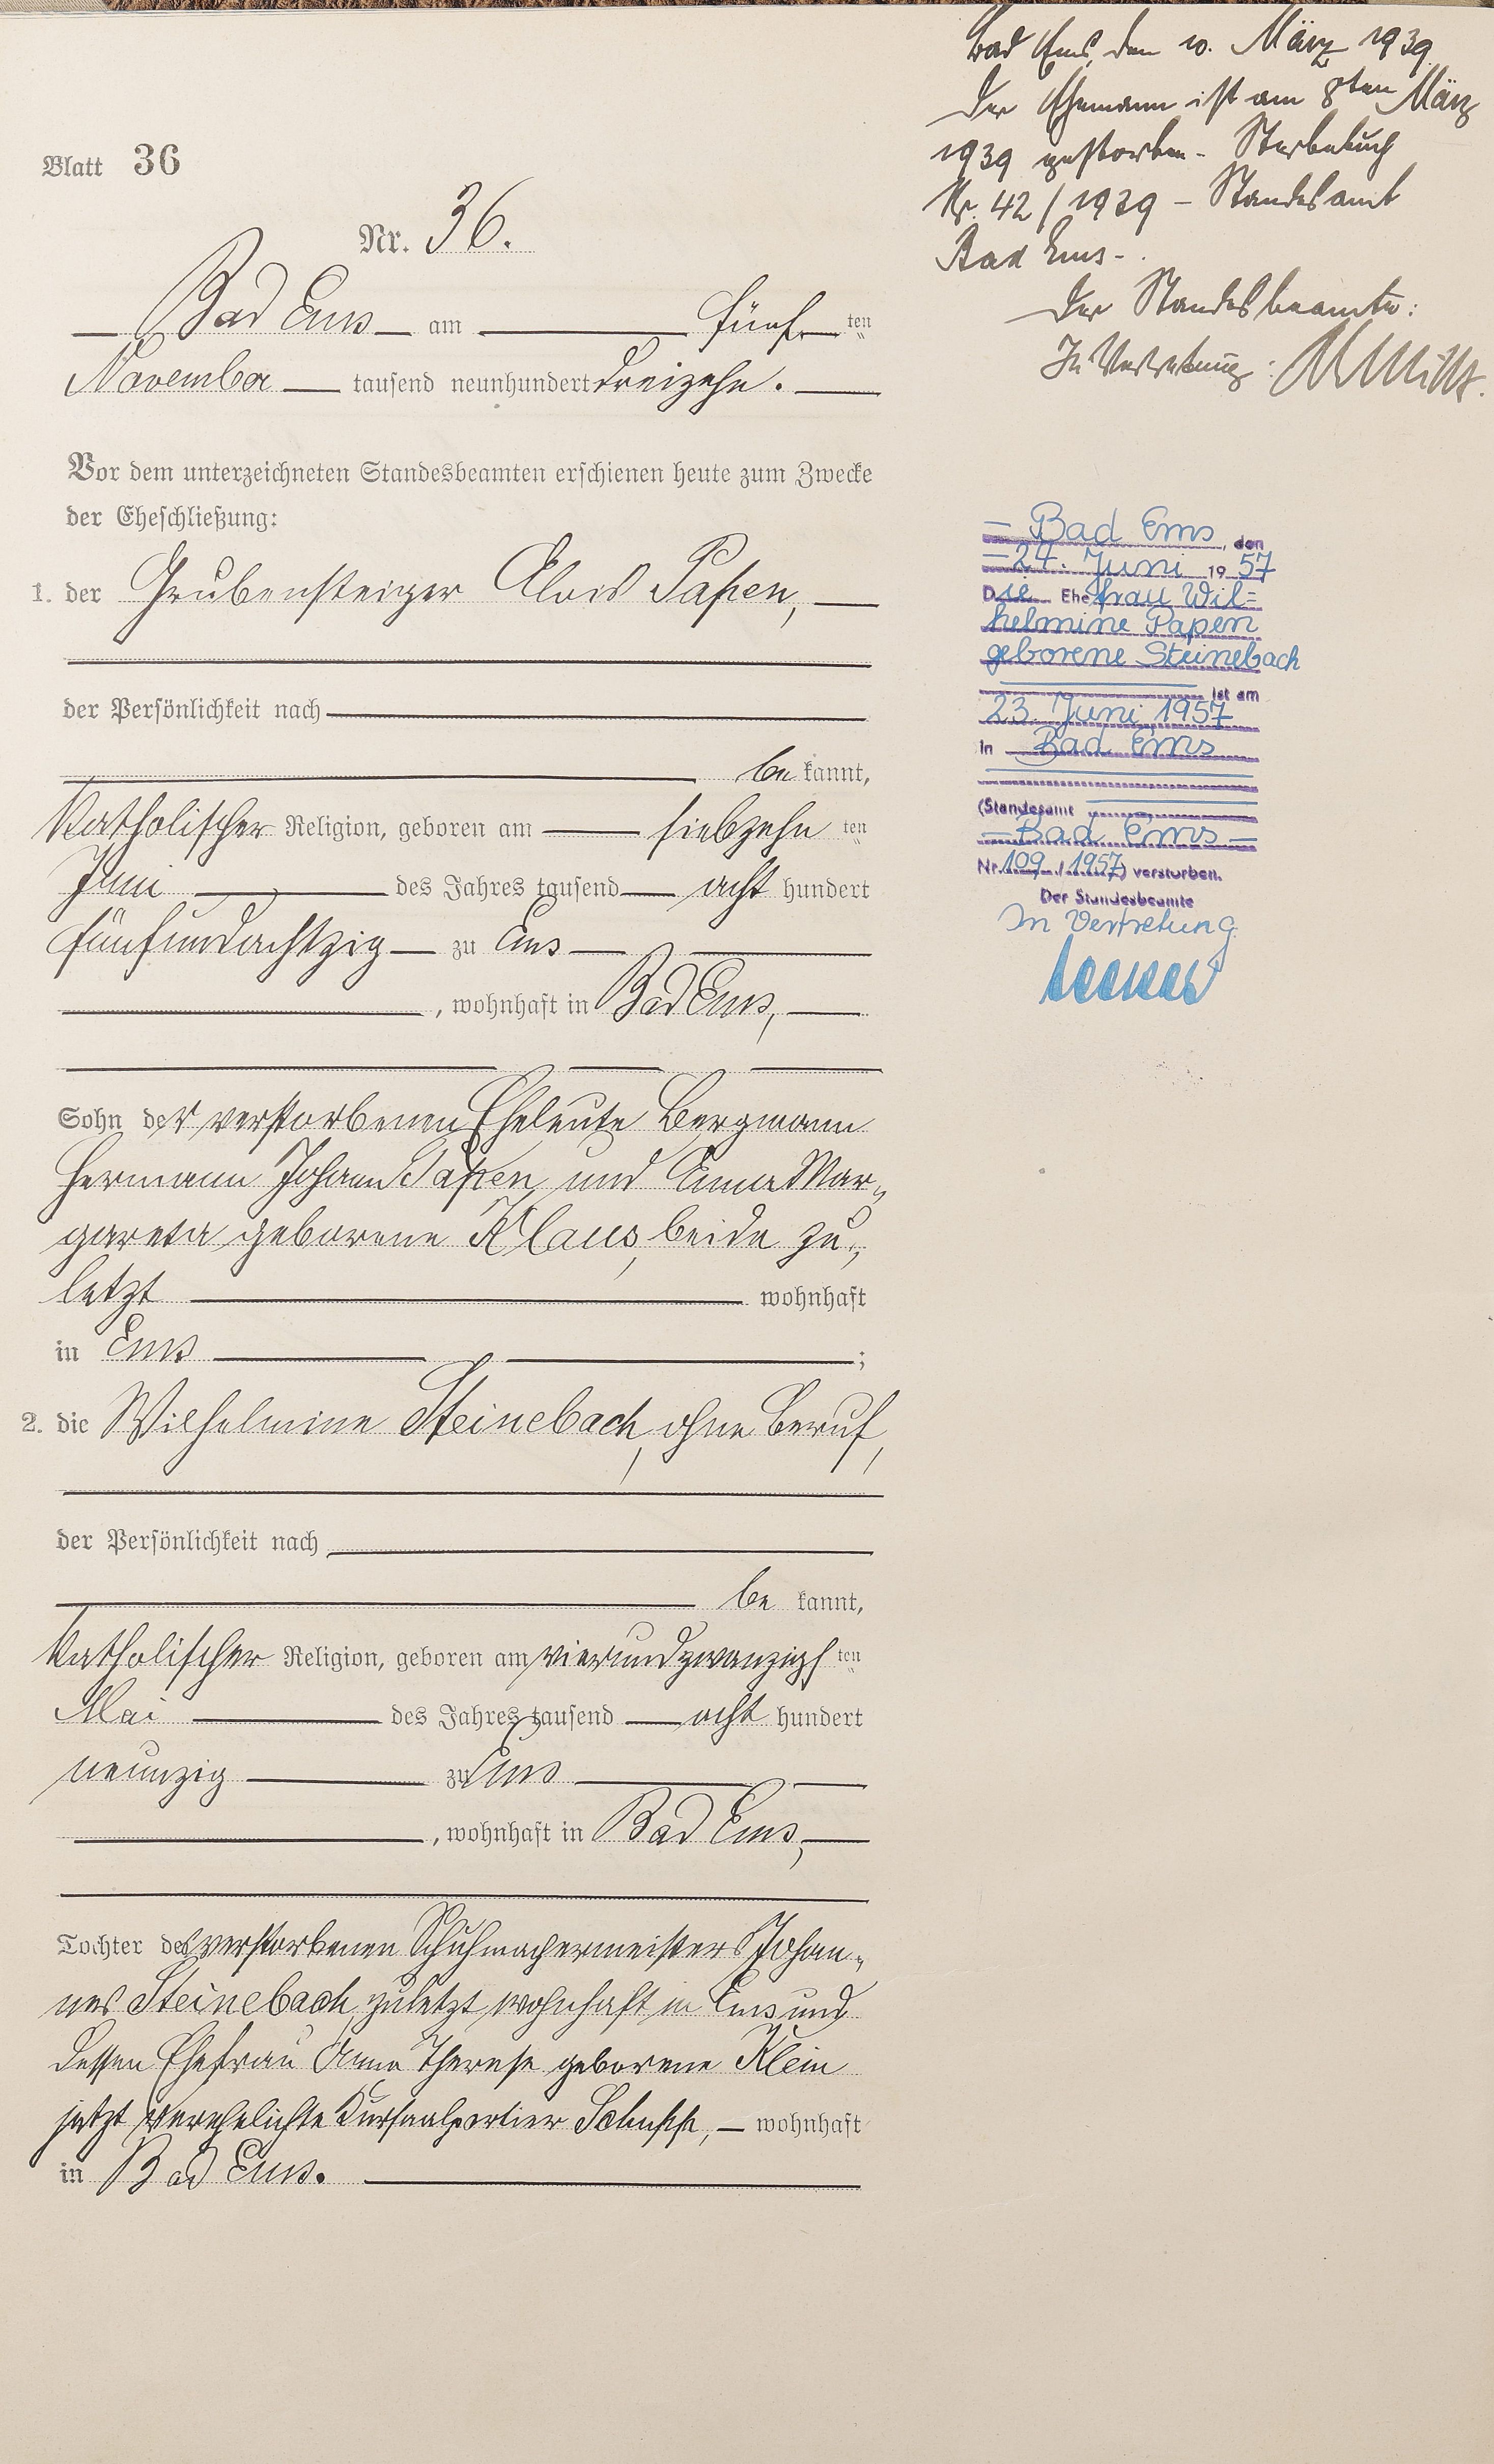 Blatt 36
Nr. 36.
Bad Ems am fünften
November tausend neunhundert dreizehn.
Vor dem unterzeichneten Standesbeamten erschienen heute zum Zwecke
der Eheschließung:
1. der Grubensteiger Alois Papen,
der Persönlichkeit nach
bekannt,
katholischer Religion, geboren am siebzehnten
Juni des Jahres tausend acht hundert
fünfundachtzig zu Ems
, wohnhaft in Bad Ems,
Sohn der verstorbenen Eheleute Bergmann
Hermann Johann Papen und Anna Mar„
gareta geborene Klaus, beide zu„
letzt wohnhaft
in Ems ;
2. die Wilhelmine Steinebach, ohne Beruf,
der Persönlichkeit nach
bekannt,
katholischer Religion, geboren am vierundzwanzigsten
Mai des Jahres tausend acht hundert
neunzig zu Ems
, wohnhaft in Bad Ems,
Tochter des verstorbenen Schuhmachermeisters Johan„
nes Steinebach, zuletzt wohnhaft in Ems und
dessen Ehefrau Anna Therese geborene Klein
jetzt verehelichte Kursaalportier Schupp, wohnhaft
in Bad Ems.
Bad Ems, den 10. März 1939.
Der Ehemann ist am 8ten März
1939 gestorben - Sterbebuch
Nr. 42/1939 - Standesamt
Bad Ems -.
Der Standesbeamte:
In Vertretung:
Bad Ems, den
24. Juni 1957
Die Ehefrau Wil=
helmine Papen
geborene Steinebach
ist am
23. Juni 1957
in Bad Ems
(Standesamt
Bad Ems
Nr. 109 / 1957) verstorben.
Der Standesbeamte
In Vertretung